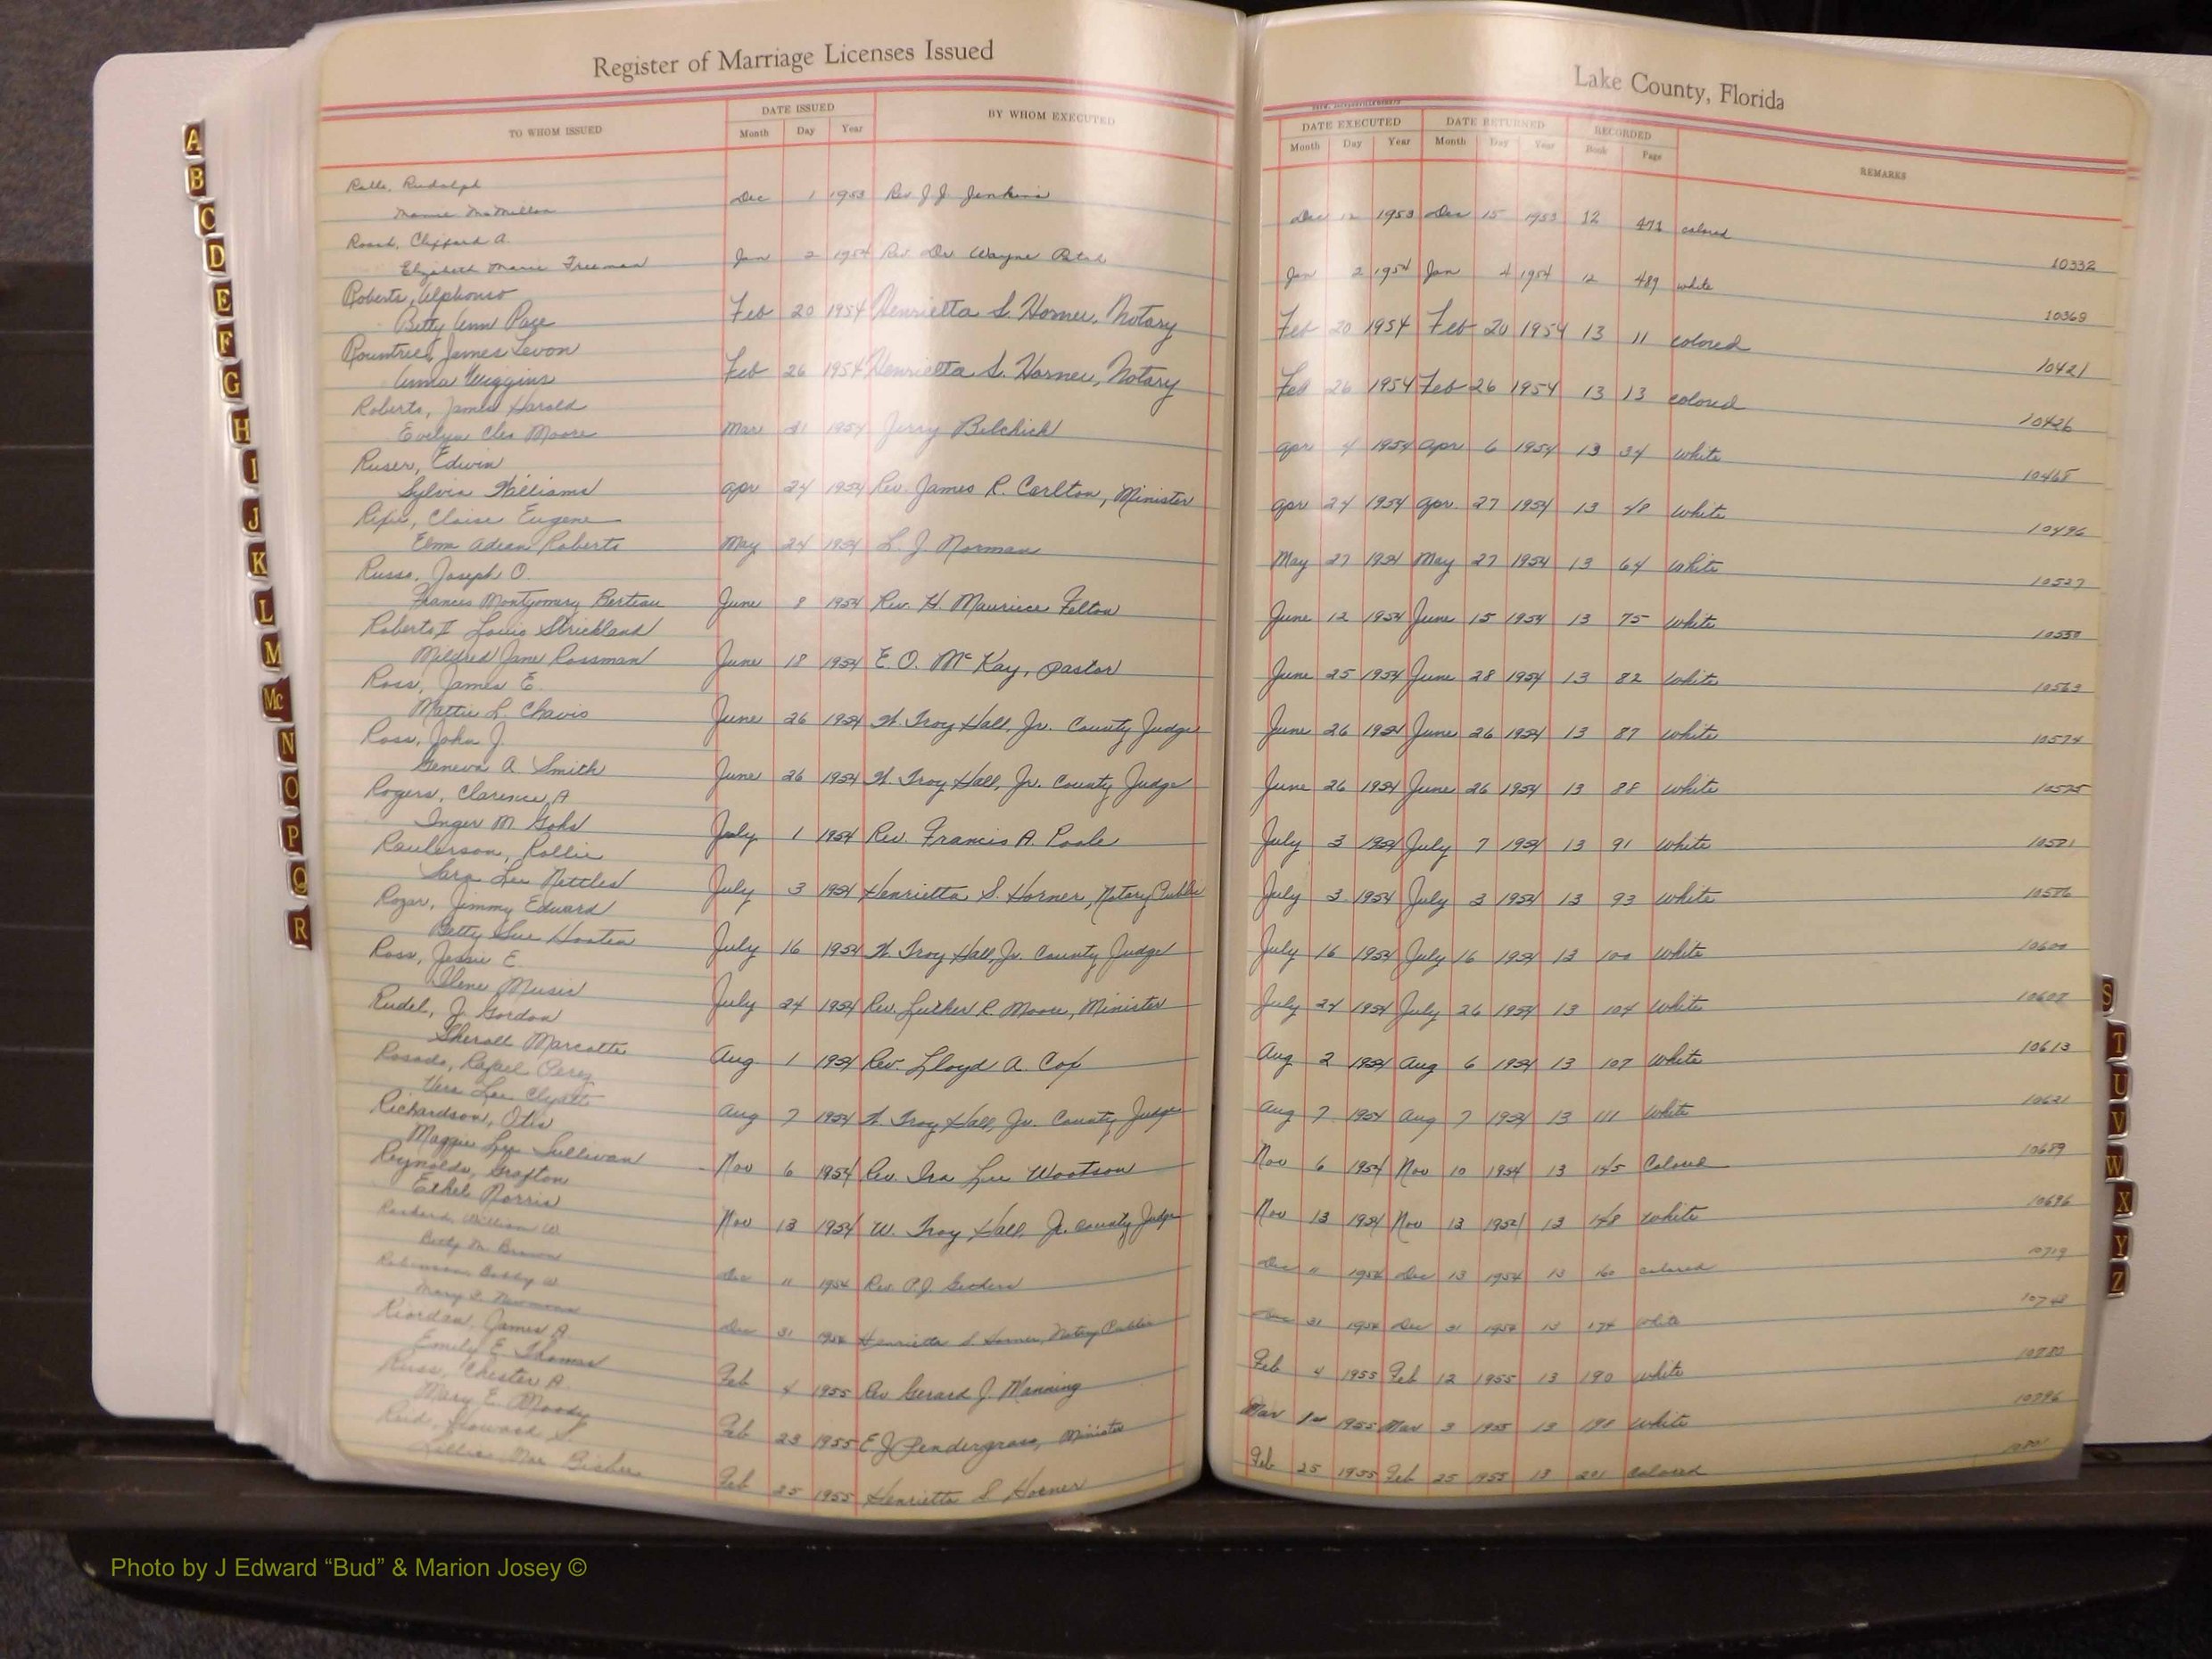 Register of Marriage Licenses Issued
Lake County, Florida
TO WHOM ISSUED DATE ISSUED BY WHOM EXECUTED
Month Day Year
DATE EXECUTED DATE RETURNED RECORDED REMARKS
Month Day Year Month Day Year Book Page
Rudolph
Dec 1 1953 Rev J J Jenkins Dec 12 1953 Dec 15 1953 12 471 colored 10332
Clifford A.
Elizabeth Marie Freeman Jan 2 1954 Rev. Wayne Jan 2 1954 Jan 4 1954 12 489 white 10369
Roberts, Alphonso
Betty Ann Page Feb 20 1954 Henrietta S. Horner, Notary Feb 20 1954 Feb 20 1954 13 11 colored 10421
Rountree, James Levon
Anna Wiggins Feb 26 1954 Henrietta S. Horner, Notary Feb 26 1954 Feb 26 1954 13 13 colored 10426
Roberts, James Harold
Evelyn Cleo Moore Mar 31 1954 Jerry Belchick Apr 4 1954 Apr 6 1954 13 34 White 10468
Ruser, Edwin
Sylvia Williams Apr 24 1954 Rev. James R. Carlton, Minister Apr 24 1954 Apr. 27 1954 13 48 White 10496
Eugene
Roberts May 24 1954 L. J. Norman May 27 1954 May 27 1954 13 64 White 10527
Russo, Joseph O.
Frances Montgomery Berteau June 8 1954 Rev. H. Maurice Felton June 12 1954 June 15 1954 13 75 White 10550
Roberts II Louis Strickland
Mildred Jane Rossman June 18 1954 E. O. McKay, Pastor June 25 1954 June 28 1954 13 82 White 10563
Ross, James E.
Mattie L. Chavis June 26 1954 W. Troy Hall, Jr. County Judge June 26 1954 June 26 1954 13 87 White 10574
Ross, John J.
Geneva A Smith June 26 1954 W. Troy Hall, Jr. County Judge June 26 1954 June 26 1954 13 88 White 10575
Rogers, Clarence A
Inger M. July 1 1954 Rev. Francis A. Poole July 3 1954 July 7 1954 13 91 White 10581
Raulerson, Rollie
Sara Lee Nettles July 3 1954 Henrietta S. Horner, Notary Public July 3 1954 July 3 1954 13 93 White 10586
Rozar, Jimmy Edward
Betty Sue Hooten July 16 1954 W. Troy Hall, Jr. County Judge July 16 1954 July 16 1954 13 100 White 10600
Ross, Jessie E.
Ilene Music July 24 1954 Rev. Luther R. Moore, Minister July 24 1954 July 26 1954 13 104 White 10608
Rudel, J. Gordon
Marcotte Aug 1 1954 Rev. Lloyd A. Cox Aug 2 1954 Aug 6 1954 13 107 White 10613
Rosado, Rafael Perez
Vera Lee Clyatt Aug 7 1954 W. Troy Hall, Jr. County Judge Aug 7 1954 Aug 7 1954 13 111 White 10621
Richardson, Otis
Maggie Lee Sullivan Nov 6 1954 Rev. Ira Lee Wootson Nov 6 1954 Nov 10 1954 13 145 Colored 10689
Reynolds, Grafton
Ethel Norris Nov 13 1954 W. Troy Hall, Jr. County Judge Nov 13 1954 Nov 13 1954 13 148 White 10696
William W
Betty M. Brown Dec 11 1954 Rev. P.J. Dec 11 1954 Dec 13 1954 13 160 colored 10719
Robinson Bobby W
Mary Dec 31 1954 Henrietta S Horner, Notary Public Dec 31 1954 Dec 31 1954 13 174 white 10748
Riordan, James A
Emily E. Thomas Feb 4 1955 Rev Gerard J. Manning Feb 4 1955 Feb 12 1955 13 190 white 10780
Russ, Chester A.
Mary E. Moody Feb 23 1955 E J Pendergrass, Minister Mar 1955 Mar 3 1955 13 198 White 10796
Reid, Howard S.
Lillie Mae Feb 25 1955 Henrietta S Horner Feb 25 1955 Feb 25 1955 13 201 Colored
A
B
C
D
E
F
G
H
I
J
K
L
M
Mc
N
O
P
Q
R
S
T
U
V
W
X
Y
Z
Photo by J Edward “Bud” & Marion Josey ©